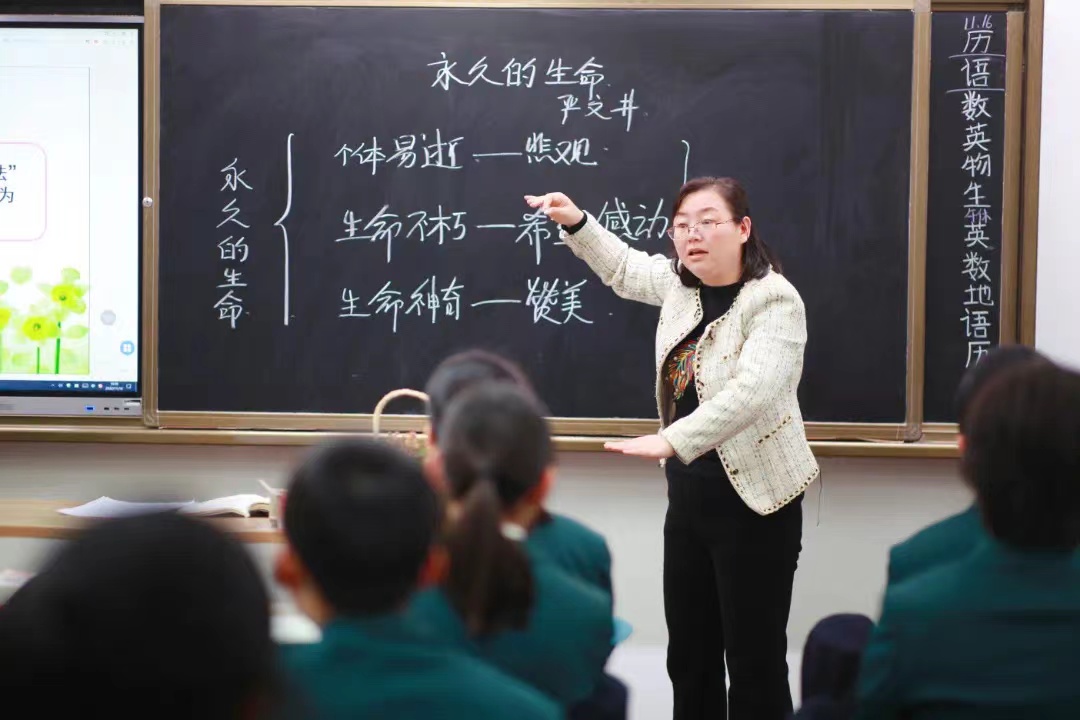 法”
为
永久的生命
严文井
永久的生命
个体易逝——悲观
生命不朽——希望 感动
生命神奇——赞美
11.16
历
语
数
英
物
生
英
数
地
语
历